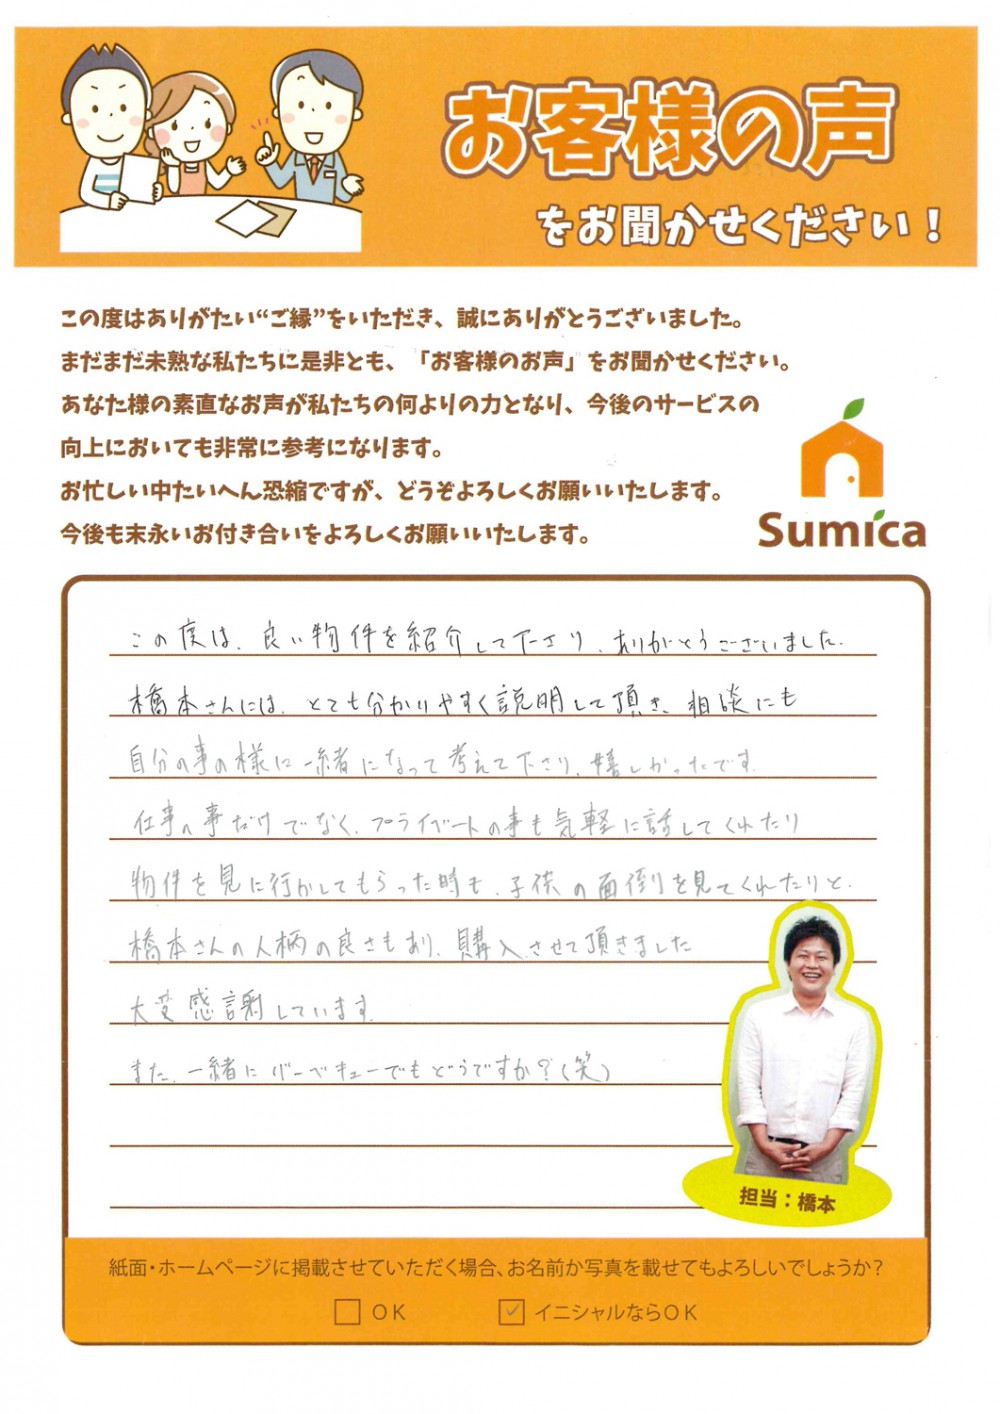 お客様の声
をお聞かせください！
この度はありがたい“ご縁”をいただき、誠にありがとうございました。
まだまだ未熟な私たちに是非とも、「お客様のお声」をお聞かせください。
あなた様の素直なお声が私たちの何よりの力となり、今後のサービスの
向上においても非常に参考になります。
お忙しい中たいへん恐縮ですが、どうぞよろしくお願いいたします。
今後も末永いお付き合いをよろしくお願いいたします。
Sumica
この度は、良い物件を紹介して下さり、ありがとうございました。
橋本さんには、とても分かりやすく説明して頂き、相談にも
自分の事の様に一緒になって考えて下さり、嬉しかったです。
仕事の事だけでなく、プライベートの事も気軽に話してくれたり
物件を見に行かしてもらった時も、子供の面倒を見てくれたりと、
橋本さんの人柄の良さもあり、購入させて頂きました
大変感謝しています。
また、一緒にバーベキューでもどうですか？(笑)
担当：橋本
紙面・ホームページに掲載させていただく場合、お名前か写真を載せてもよろしいでしょうか？
□ OK ☑ イニシャルならOK